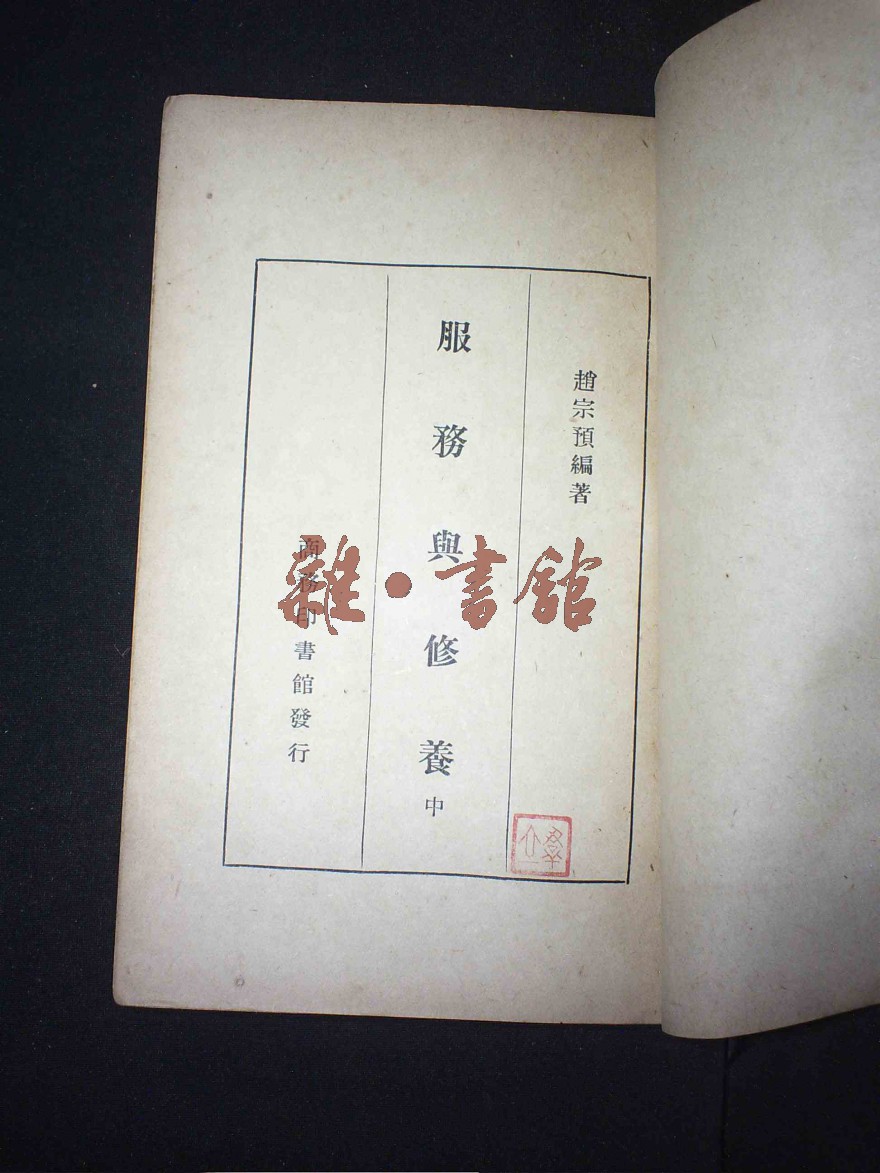 趙宗預編著
服務與修養中
商務印書館發行
雜·書館